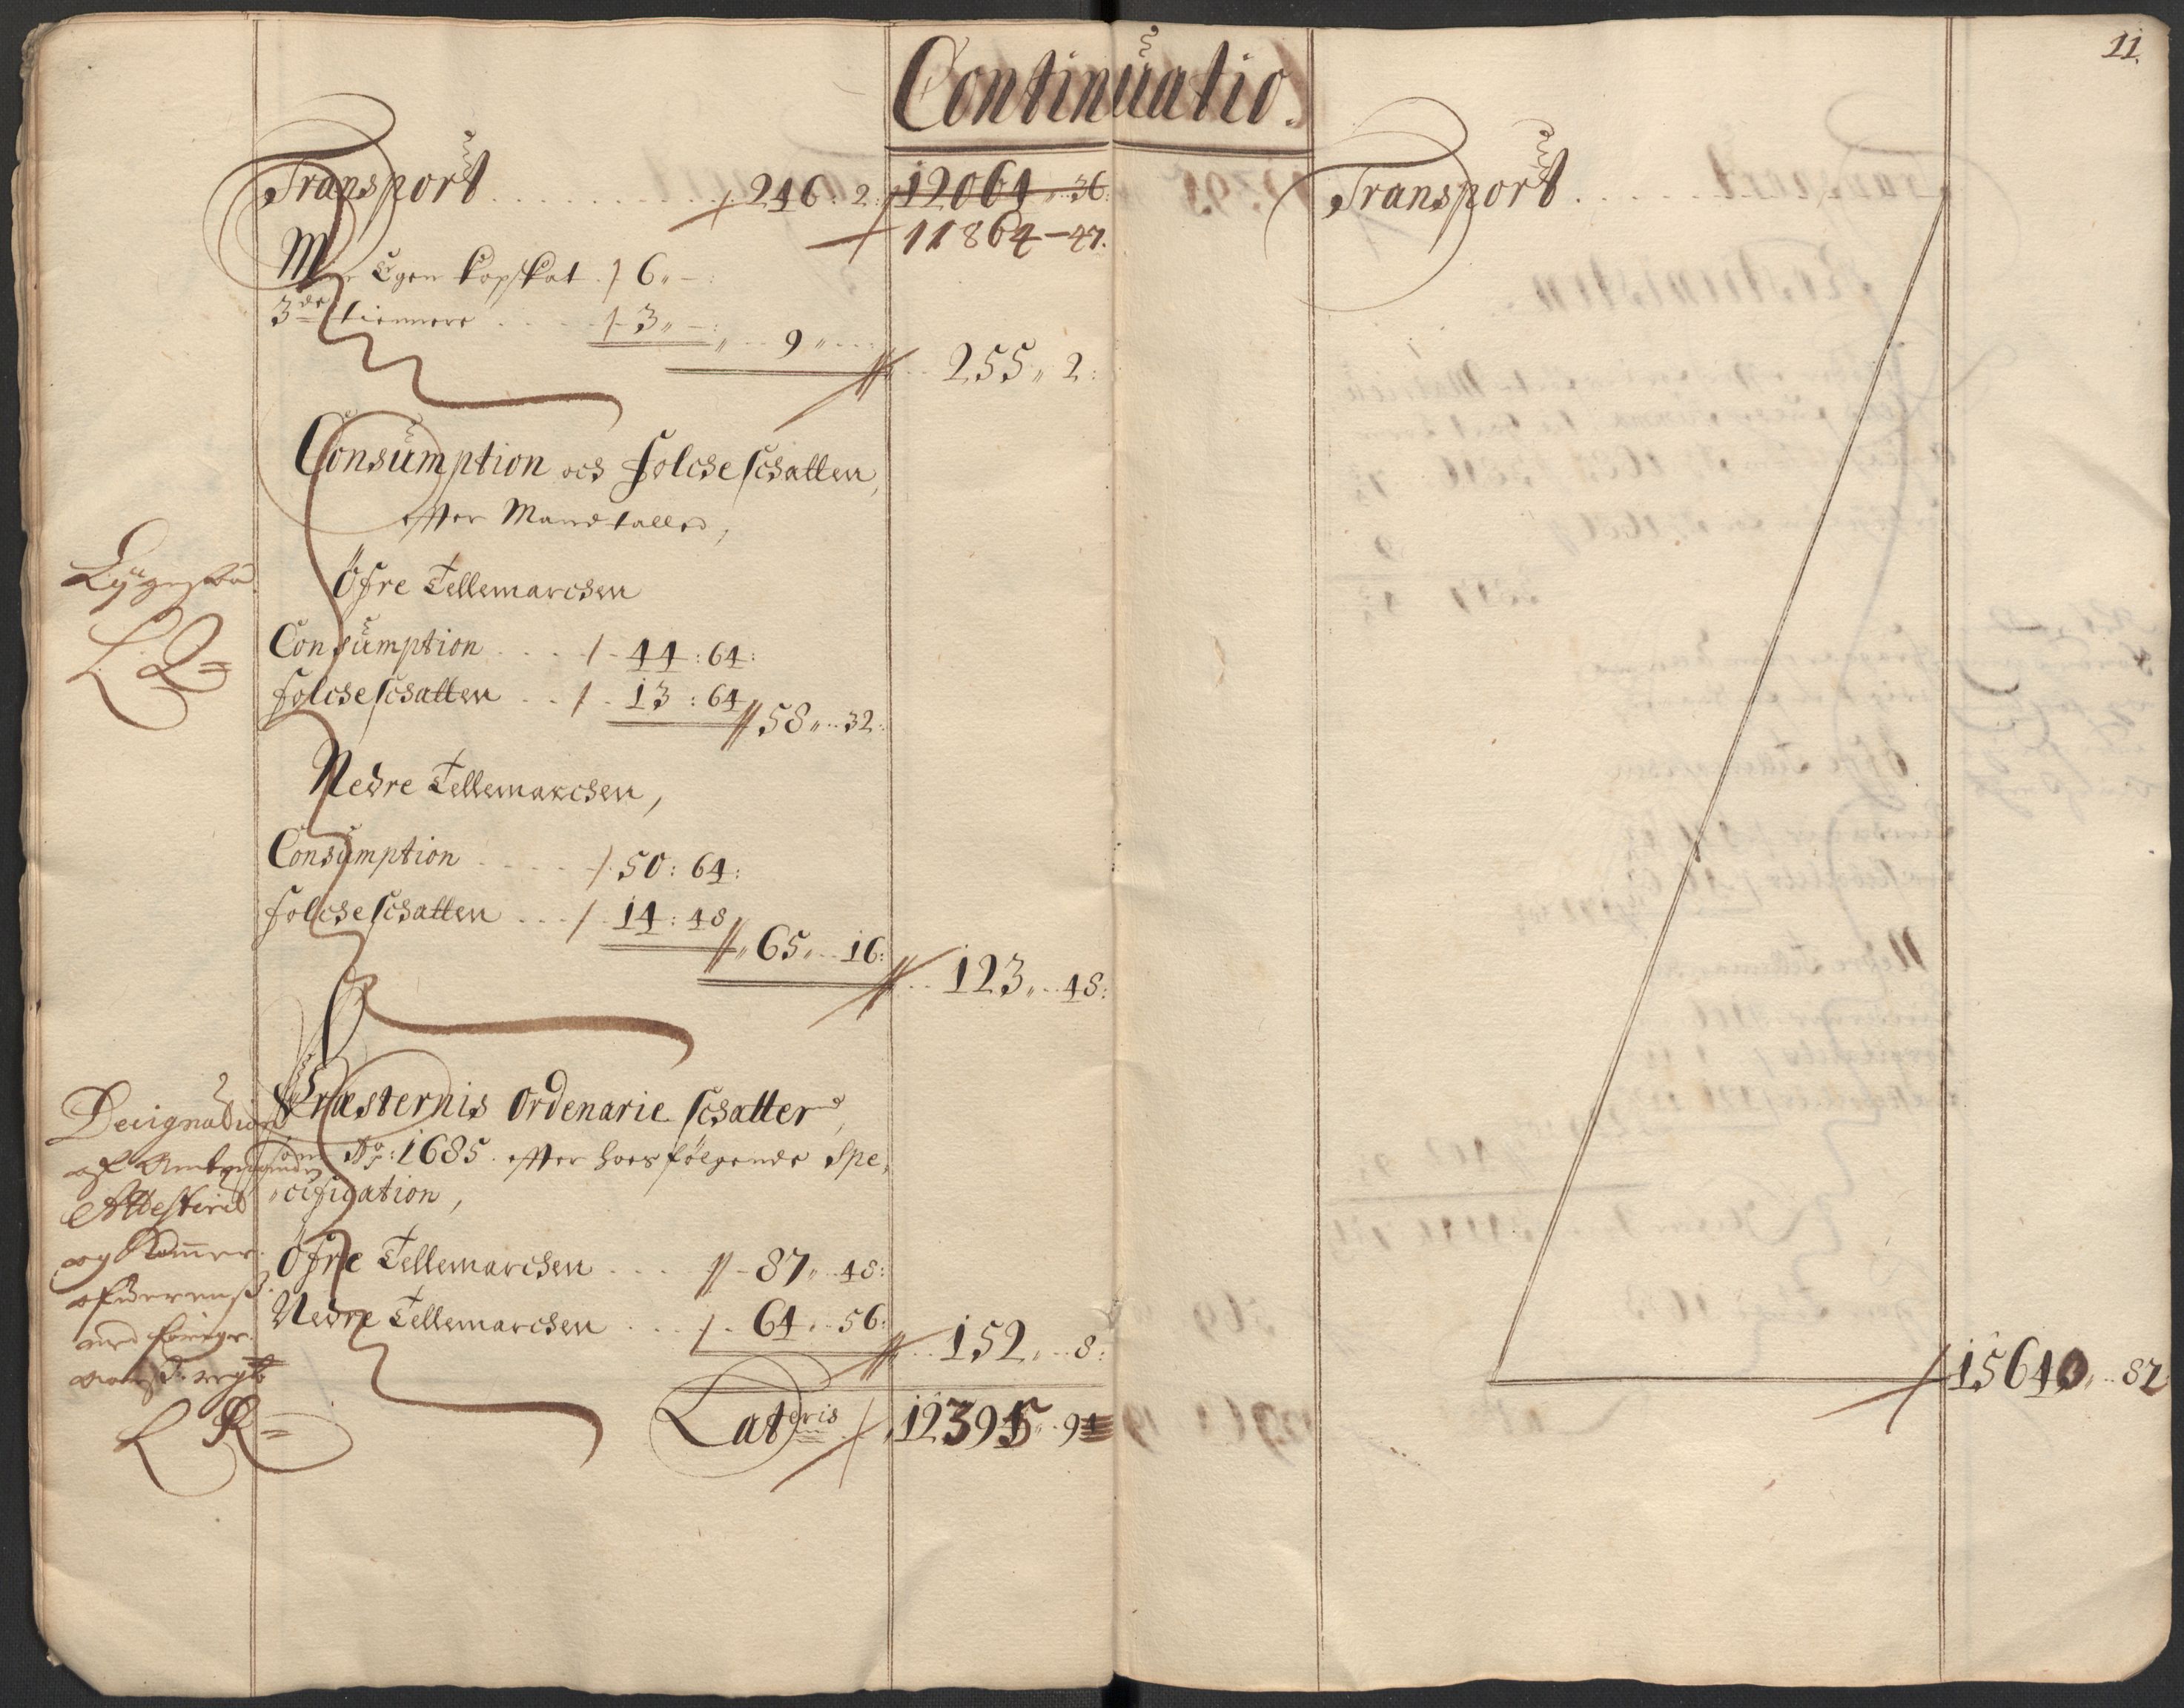 Continuatio.
11.
Transport . . . . . . . . . . 246 : 2 : 12064 .. 36.
11864 — 47.
Min Egen kopskat . 6 „ — :
3de tiennere . . . . 3 „ — : „ .. 9 „ . . .
255 „ 2 :
Consumption och folcheschatten,
effter Mandtalled,
Öfre Tellemarchen
Consumption . . . . 44 : 64 :
folcheschatten . . . 13 : 64
58 „ .. 32 :
L: Q =
Nedre Tellemarchen,
Consumption . . . . 50 : 64 :
folcheschatten . . . 14 : 48
65 „ .. 16 :
123 „ .. 48 :
Præsternis Ordenarie schatter,
som Ao: 1685. effter hoesfölgende Spe,
„cification,
Öfre Tellemarchen . . . . 87 „ .. 48 :
Nedre Tellemarchen . . . . 64 „ .. 56 :
152 „ .. 8 :
Designation
af
Attesterit
og
med
L R =
Lateris 12395 „ 9
Transport . . . . . . . .
15640 „ .. 82